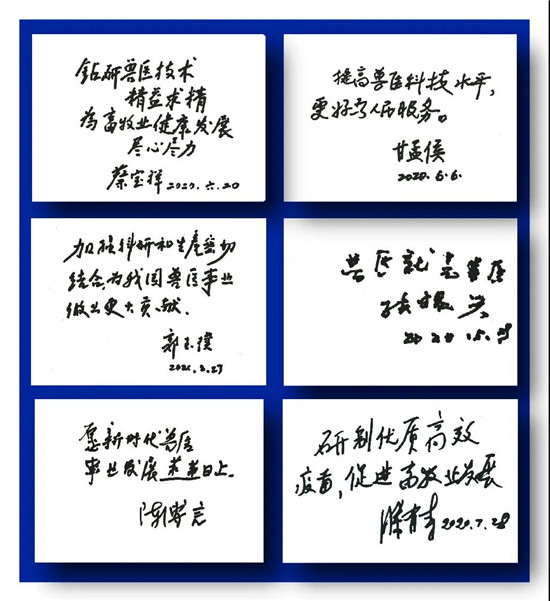 钻研兽医技术
精益求精
为畜牧业健康发展
尽心尽力
蔡宝祥 2020.六.20
提高兽医科技水平,
更好为人民服务。
甘孟侯
2020.6.6.
加强科研和生产密切
结合,为我国兽医事业
做出更大贡献.
郭玉璞
兽医就是
振兴
愿新时代兽医
事业发展蒸蒸日上.
陈溥言
研制优质高效
疫苗,促进畜牧业发展
2020.7.28